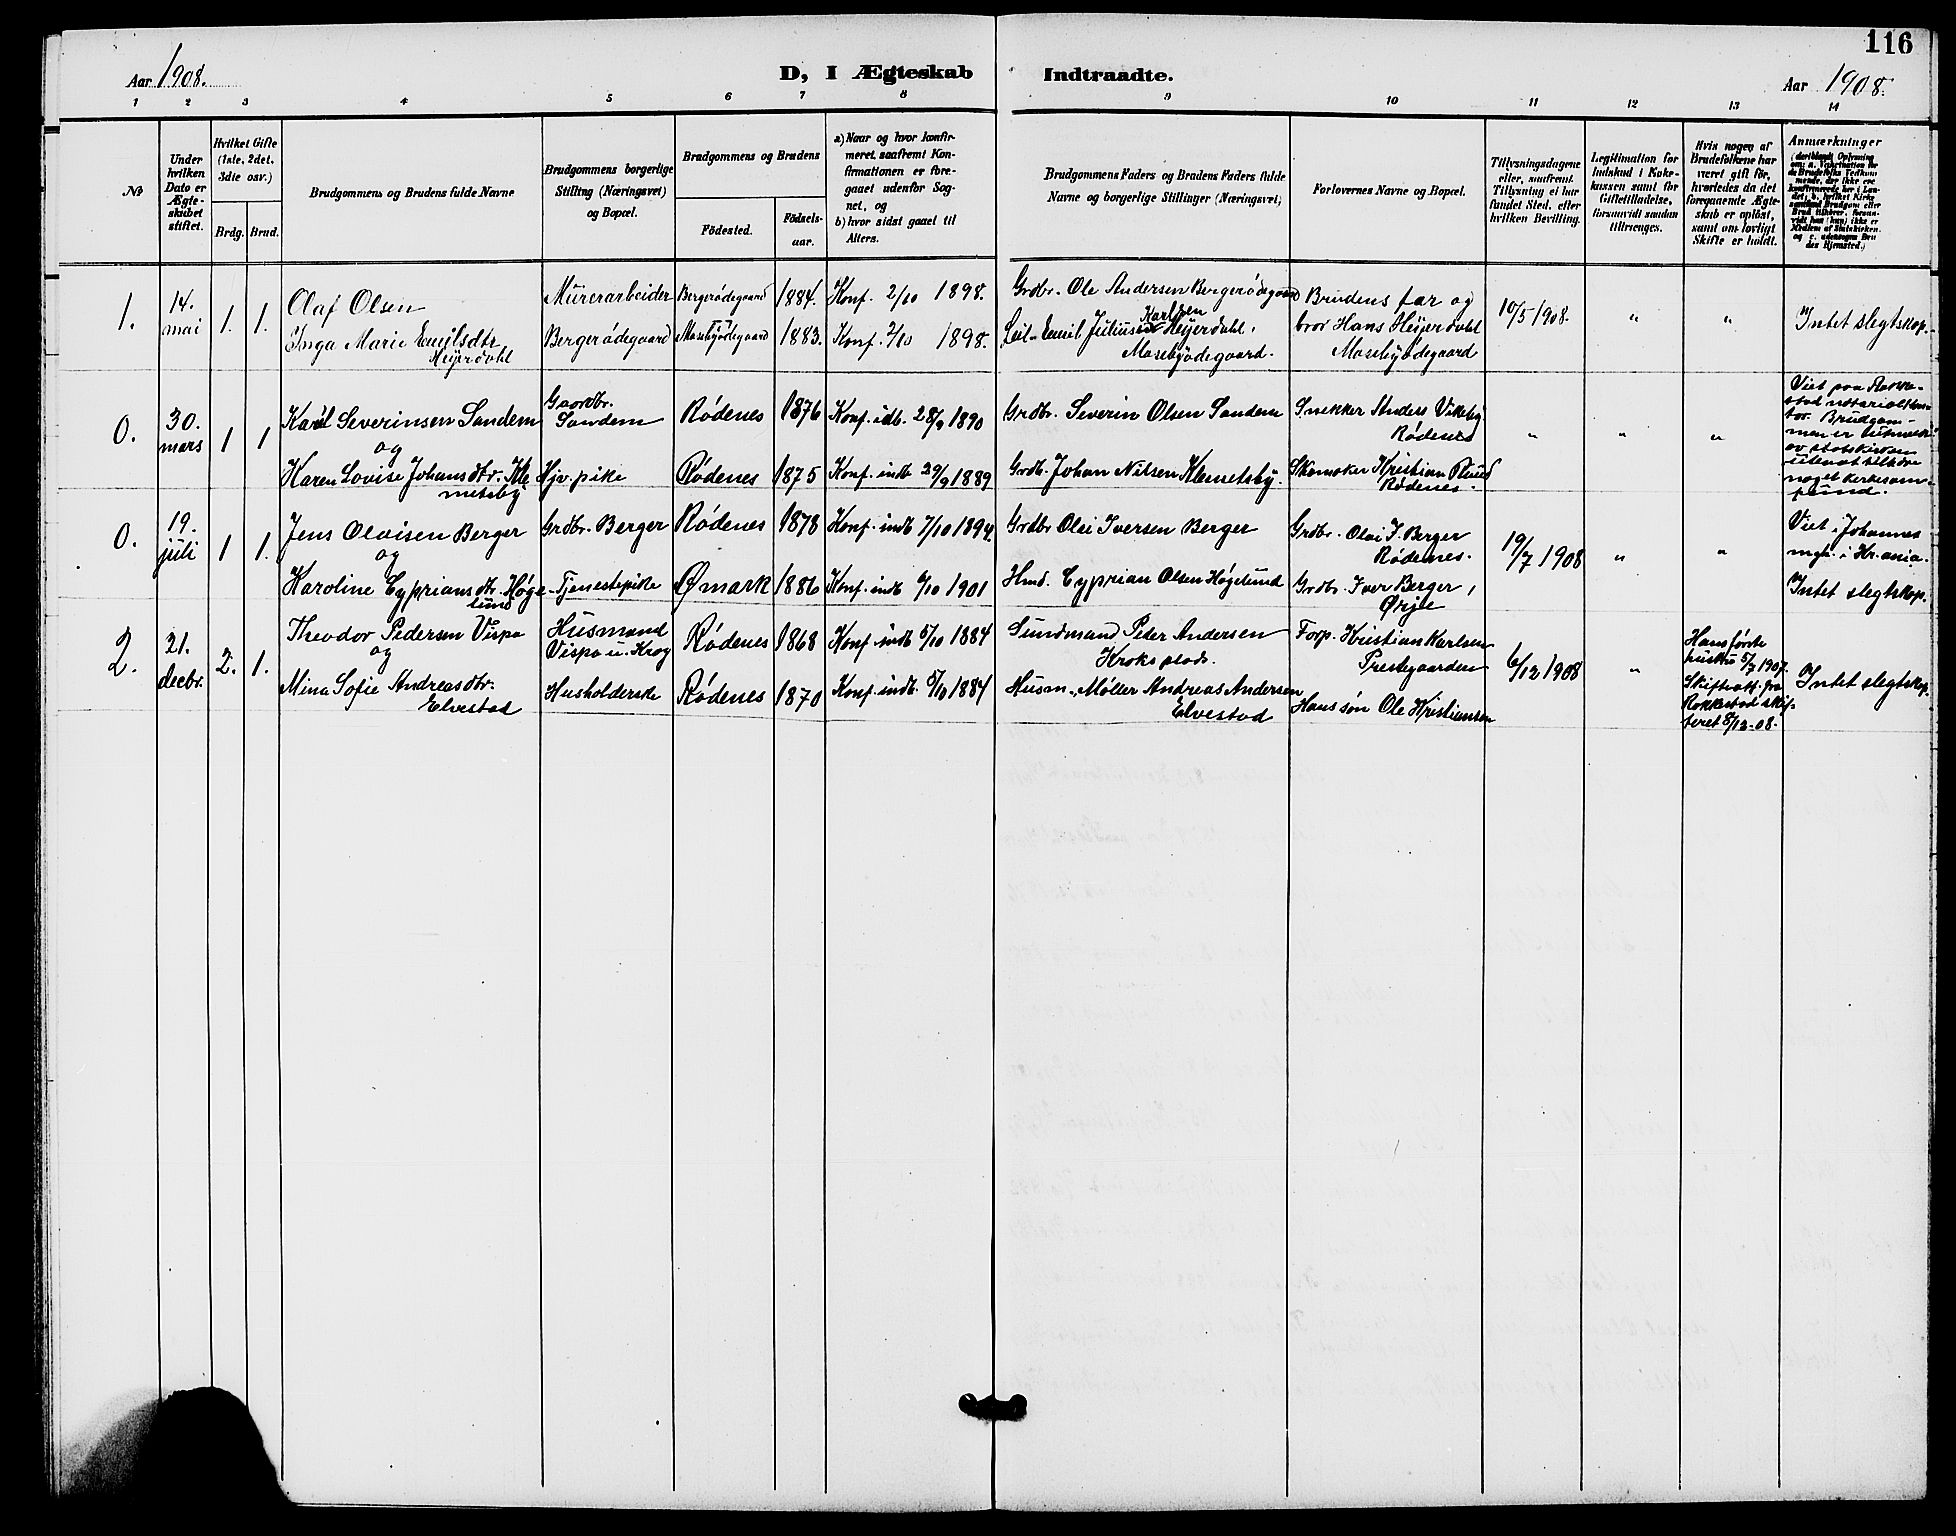 116
Aar 1908.
D, I Ægteskab Indtraadte.
Aar 1908.
1 2 3 4 5 6 7 8 9 10 11 12 13 14
№
Under hvilken Dato er Ægteskabet stiftet.
Hvilket Gifte (1ste, 2det, 3die osv.)
Brdg. Brud.
Brudgommens og Brudens fulde Navne
Brudgommens borgerlige Stilling (Næringsvei) og Bopæl.
Brudgommens og Brudens
Födested.
Födselsaar.
a) Naar og hvor konfirmeret, saafremt Konfirmationen er foregaaet udenfor Sognet, og
b) hvor sidst gaaet til Alters.
Brudgommens Faders og Brudens Faders fulde Navne og borgerlige Stillinger (Næringsvei)
Forlovernes Navne og Bopæl.
Tillysningsdagene eller, saafremt Tillysning ei har fundet Sted, efter hvilken Bevilling.
Legitimation for Indskud i Enkekassen samt for Giftetilladelse, forsaavidt saadan tiltrænges.
Hvis nogen af Brudefolkene har været gift för, hvorledes da det foregaaende Ægteskab er oplöst, samt om lovligt Skifte er holdt.
Anmærkninger
1. 14. mai 1. 1.
Olaf Olsen
Inga Marie Emilsdtr
Heyerdahl
Murerarbeider
Bergerødegaard
Bergerødegaard 1884. Konf. 2/10 1898.
Mosebyødegaard 1883. Konf. 2/10 1898.
Grdbr. Ole Andersen Bergerødegaard
Karlsen
Leil. Emil Julius Heyerdahl,
Mosebyødegaard.
Brudens far og
bror Hans Heyerdahl
Mosebyødegaard
10/5 1908. " "
Intet slegtskap.
0. 30. mars 1 1
Karl Severinsen Sandem
og
Karen Lovise Johansdtr. Kle
metsby
Gaardbr.
Sandem
Hjv. pike
Rødenes 1876 Konf. idb. 28/9 1890
Rødenes 1875 Konf. indb 29/9 1889
Grdbr. Severin Olsen Sandem
Grdb. Johan Nilsen Klemetsby.
Snekker Anders Vikeby
Rødenes
Skomaker Kristian
Rødenes.
" " "
Viet paa Rakkestad
notarialkontor.
Brudgommen er utmeldt
av statskirken
uten at tilhøre
noget kirkesam-
fund.
0. 19. juli 1 1.
Jens Olvisen Berger
og
Karoline Cypriansdtr. Høge
lund
Grdbr. Berger
Tjenestepike
Rødenes 1878 Konf. indb 7/10 1894.
Ømark 1886 Konf. indb 6/10 1901
Grdbr Olai Iversen Berger
Hmd. Cyprian Olsen Høgelund
Grdbr. Olai I. Berger
Rødenes.
Grdbr. Iver Berger,
Ørje
19/7 1908 " "
Viet i Johannes
mgh. i Kr.ania.
Intet slegtskap.
2. 21. decbr. 2. 1.
Theodor Pedersen Vispo
og
Mina Sofie Andreasdtr.
Elvestad
Husmand
Vispo u. Krog
Husholderske
Rødenes 1868 Konf. indb 5/10 1884
Rødenes 1870 Konf. indb. 5/10 1884
Sundmand Peter Andersen
Kroksplads.
Husm., Møller Andreas Andersen
Elvestad
Forp. Kristian Karlsen
Prestegaarden
Hans søn Ole Kristiansen
6/12 1908 "
Hans første
hustru 5/3 1907.
Skifteatt. fra
Rakkestad skif-
teret 8/12-08.
Intet slegtskap.